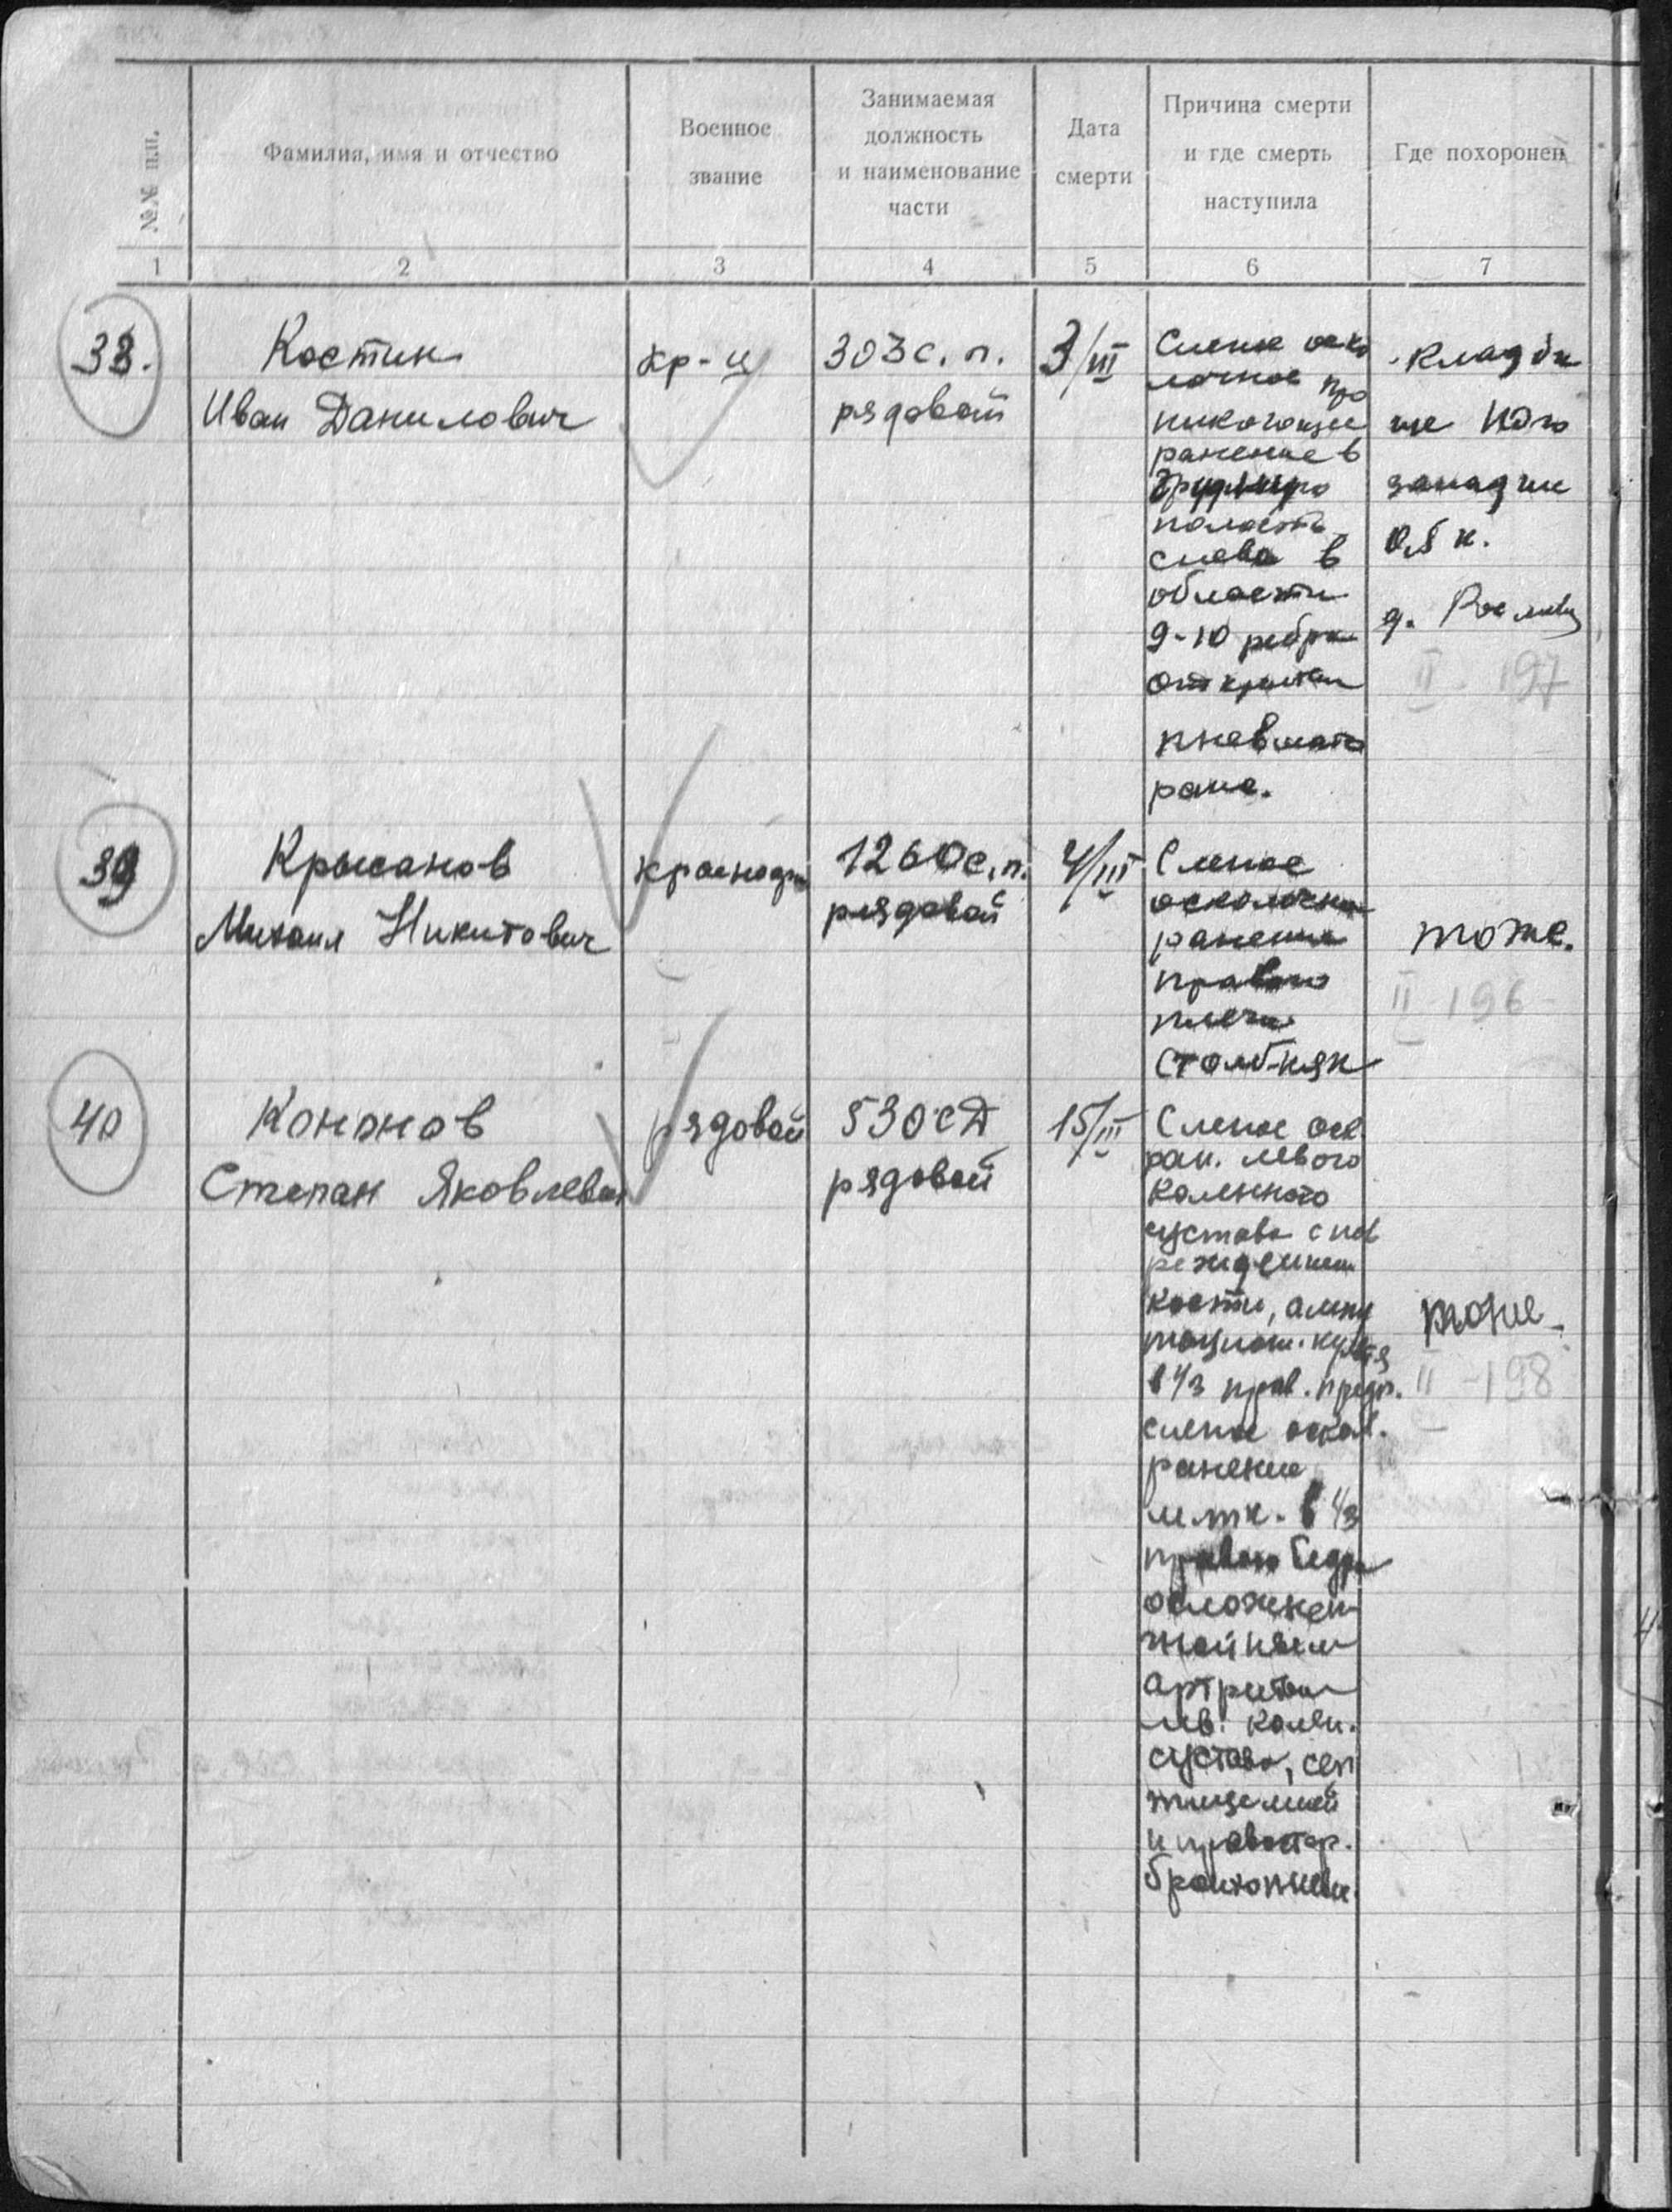 №№ п.п.
Фамилия, имя и отчество
Военное
звание
Занимаемая
должность
и наименование
части
Дата
смерти
Причина смерти
и где смерть
наступила
Где похоронен
1 2 3 4 5 6 7
38.
Костин
Иван Данилович
кр-ц
303 с. п.
рядовой
3/III
Слепое оско
лочное про
никающее
ранение в
грудную
полость
слева в
области
9-10 ребра
открытый
пневмото
ракс.
кладби
ще Юго
западнее
0,5 к.
д.
II 197
39
Крысанов
Михаил Никитович
1260 с. п.
рядовой
4/III
Слепое
осколочное
ранение
правого
плеча
столбняк
тоже.
II-196
40
Кононов
Степан Яковлевич
рядовой
530 сД
рядовой
15/III
Слепое оск.
ран. левого
коленного
сустава с пов
реждением
кости, ампу
культя
в 1/3 прав. предп.
слепое оскол.
ранение
м. тк. в 1/3
правого бедра
осложнен
артритом
лев. колен.
сустава, сеп
тицемией
и правостор.
тоже
II-198